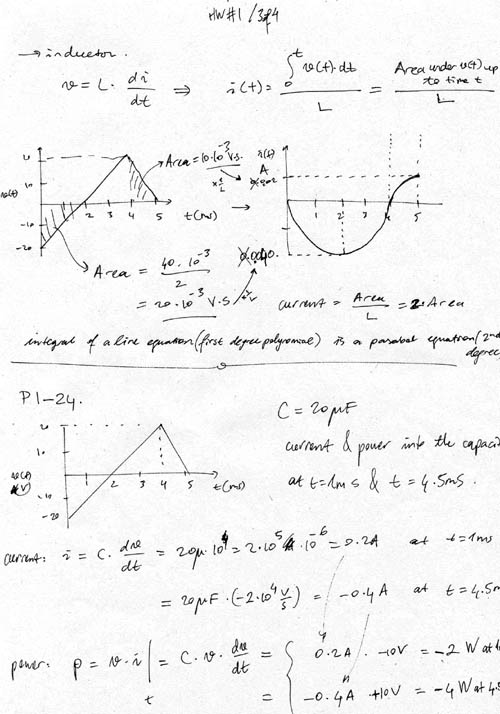 HW#1 / 3of4
→ inductor.
v = L · di/dt ⇒ i(t) = ∫₀ᵗ v(t)·dt / L = Area under v(t) up to time t / L
10
-10
-20
1 2 3 4 5 t(ms)
Area = 10·10⁻³ V·s.
→
i(t)
A
1 2 3 4 5
Area = 40·10⁻³ / 2
= 20·10⁻³ V·S
current = Area / L = 2·Area
integral of a line equation (first degree polynomial) is a parabol equation (2nd
degree
P1-24.
C = 20μF
current & power into the capaci
at t=1ms & t = 4.5ms.
-10
-20
1 2 3 4 5 t(ms)
current: i = C · dv/dt = 20μ·10⁴ = 2·10⁵ · 10⁻⁶ = 0.2A at t=1ms
= 20μF · (-2·10⁴ V/s) = -0.4A at t = 4.5m
power: p = v·i |t = C·v· dv/dt = { 0.2A · -10V = -2 W at
= -0.4A +10V = -4W at 4.